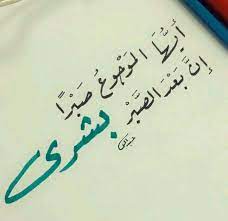 أَيُّهَا المَوْجُوعُ صَبْرًا
إِنَّ بَعْدَ الصَّبْرِ بشرى